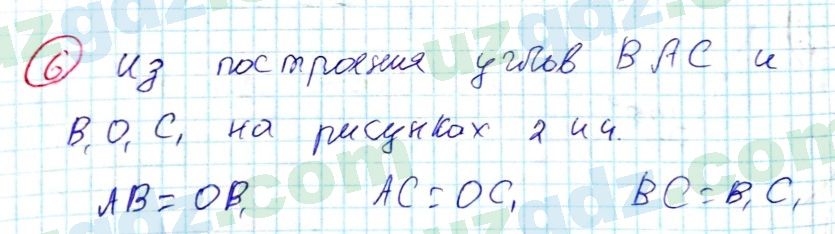 6 Из построения углов BAC и
B₁O₁C₁ на рисунках 2 и 4.
AB=OB₁ AC=OC₁ BC=B₁C₁
uzgdz.com